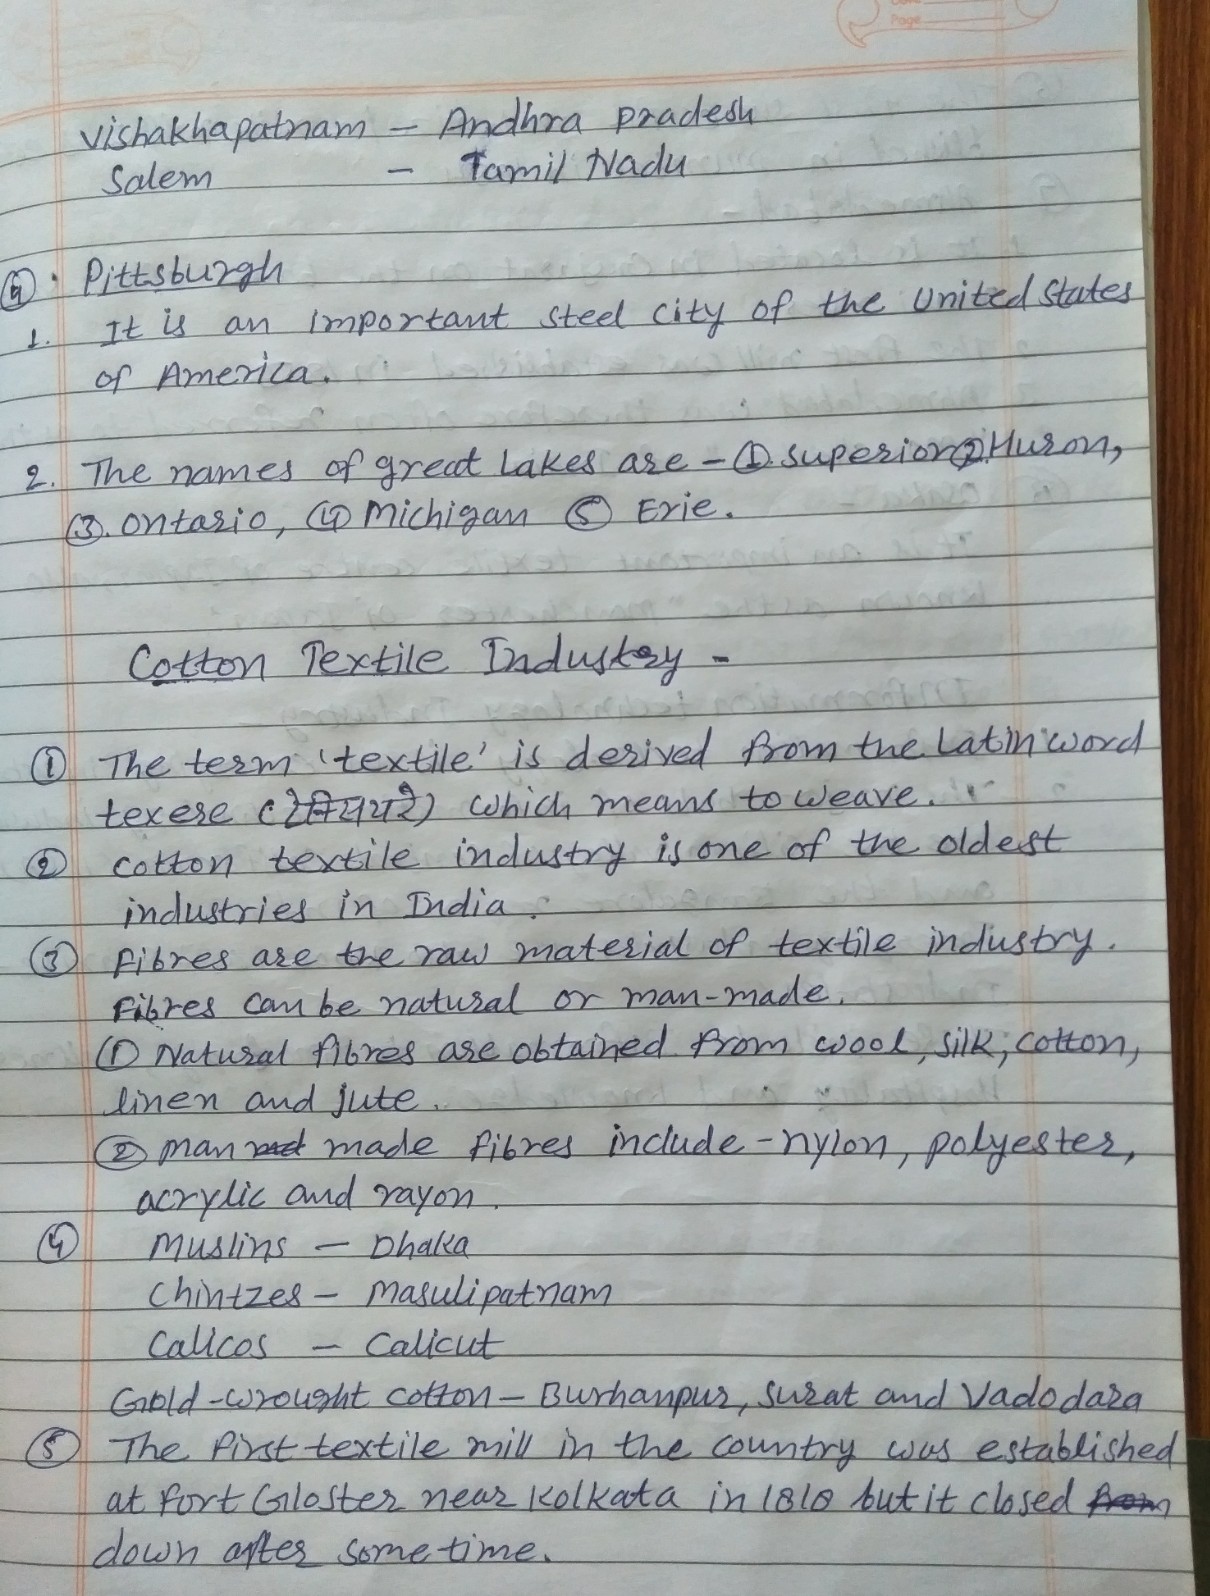 Page
Vishakhapatnam - Andhra Pradesh
Salem - Tamil Nadu
④ Pittsburgh
1. It is an important steel city of the United States
of America.
2. The names of great lakes are - ①. superior ②. Huron,
③. Ontario, ④ Michigan ⑤ Erie.
Cotton Textile Industry -
① The term 'textile' is derived from the Latin word
texere ( ) which means to weave.
② Cotton textile industry is one of the oldest
industries in India.
③ Fibres are the raw material of textile industry.
Fibres can be natural or man-made.
① Natural fibres are obtained from wool, silk, cotton,
linen and jute.
② man made fibres include - nylon, polyester,
acrylic and rayon.
④ Muslins - Dhaka
Chintzes - Masulipatnam
Calicos - Calicut
Gold-wrought cotton - Burhanpur, Surat and Vadodara
⑤ The first textile mill in the country was established
at Fort Gloster near Kolkata in 1818 but it closed from
down after some time.